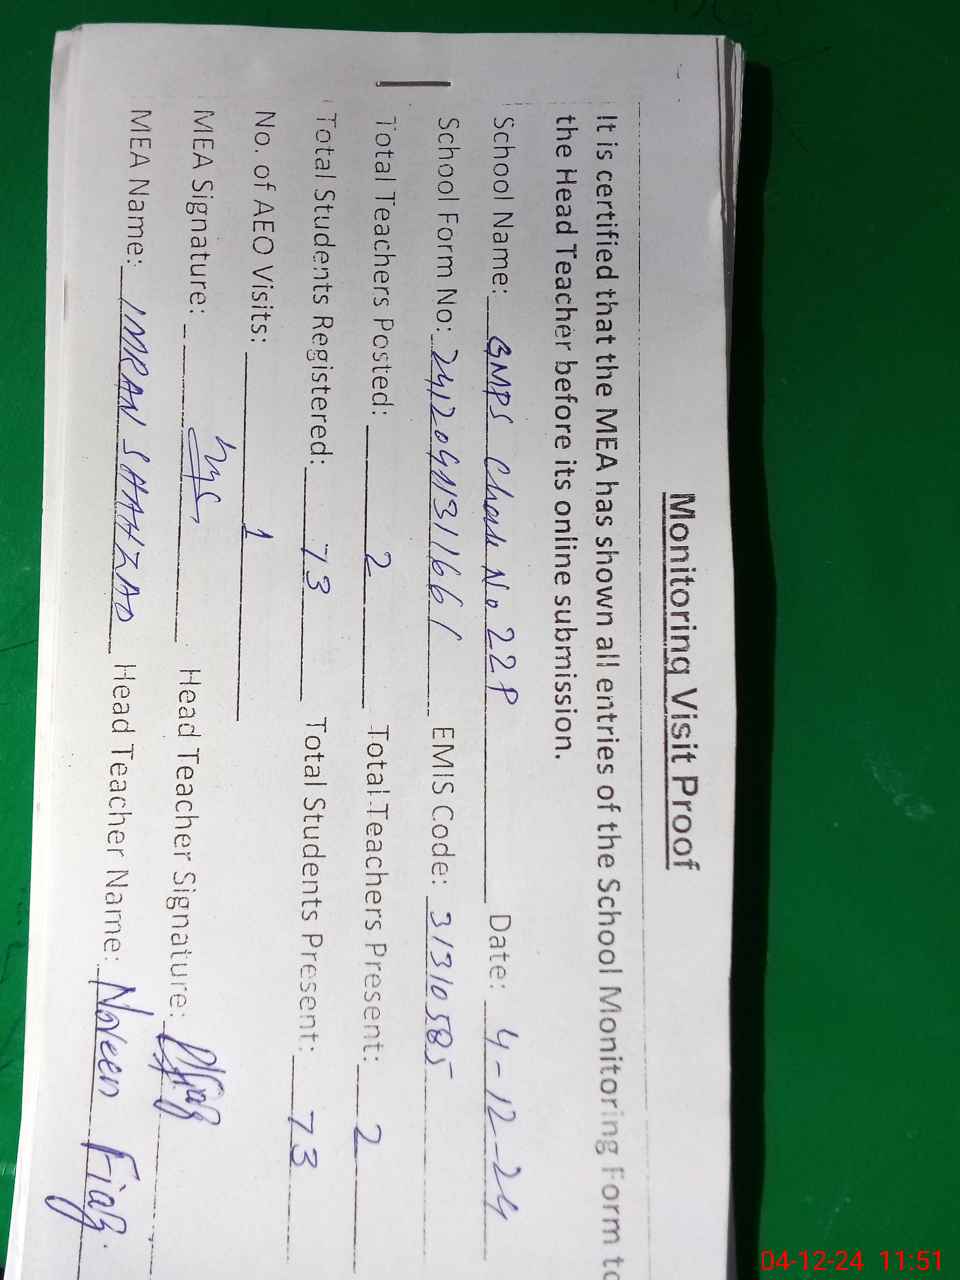 Monitoring Visit Proof
It is certified that the MEA has shown all entries of the School Monitoring Form to
the Head Teacher before its online submission.
School Name: GMPS Chak No 22P Date: 4-12-24
School Form No: 241204131661 EMIS Code: 31310585
Total Teachers Posted: 2 Total Teachers Present: 2
Total Students Registered: 73 Total Students Present: 73
No. of AEO Visits: 1
MEA Signature: Head Teacher Signature:
MEA Name: IMRAN SHAHZAD Head Teacher Name: Noveen Fiaz
04-12-24 11:51